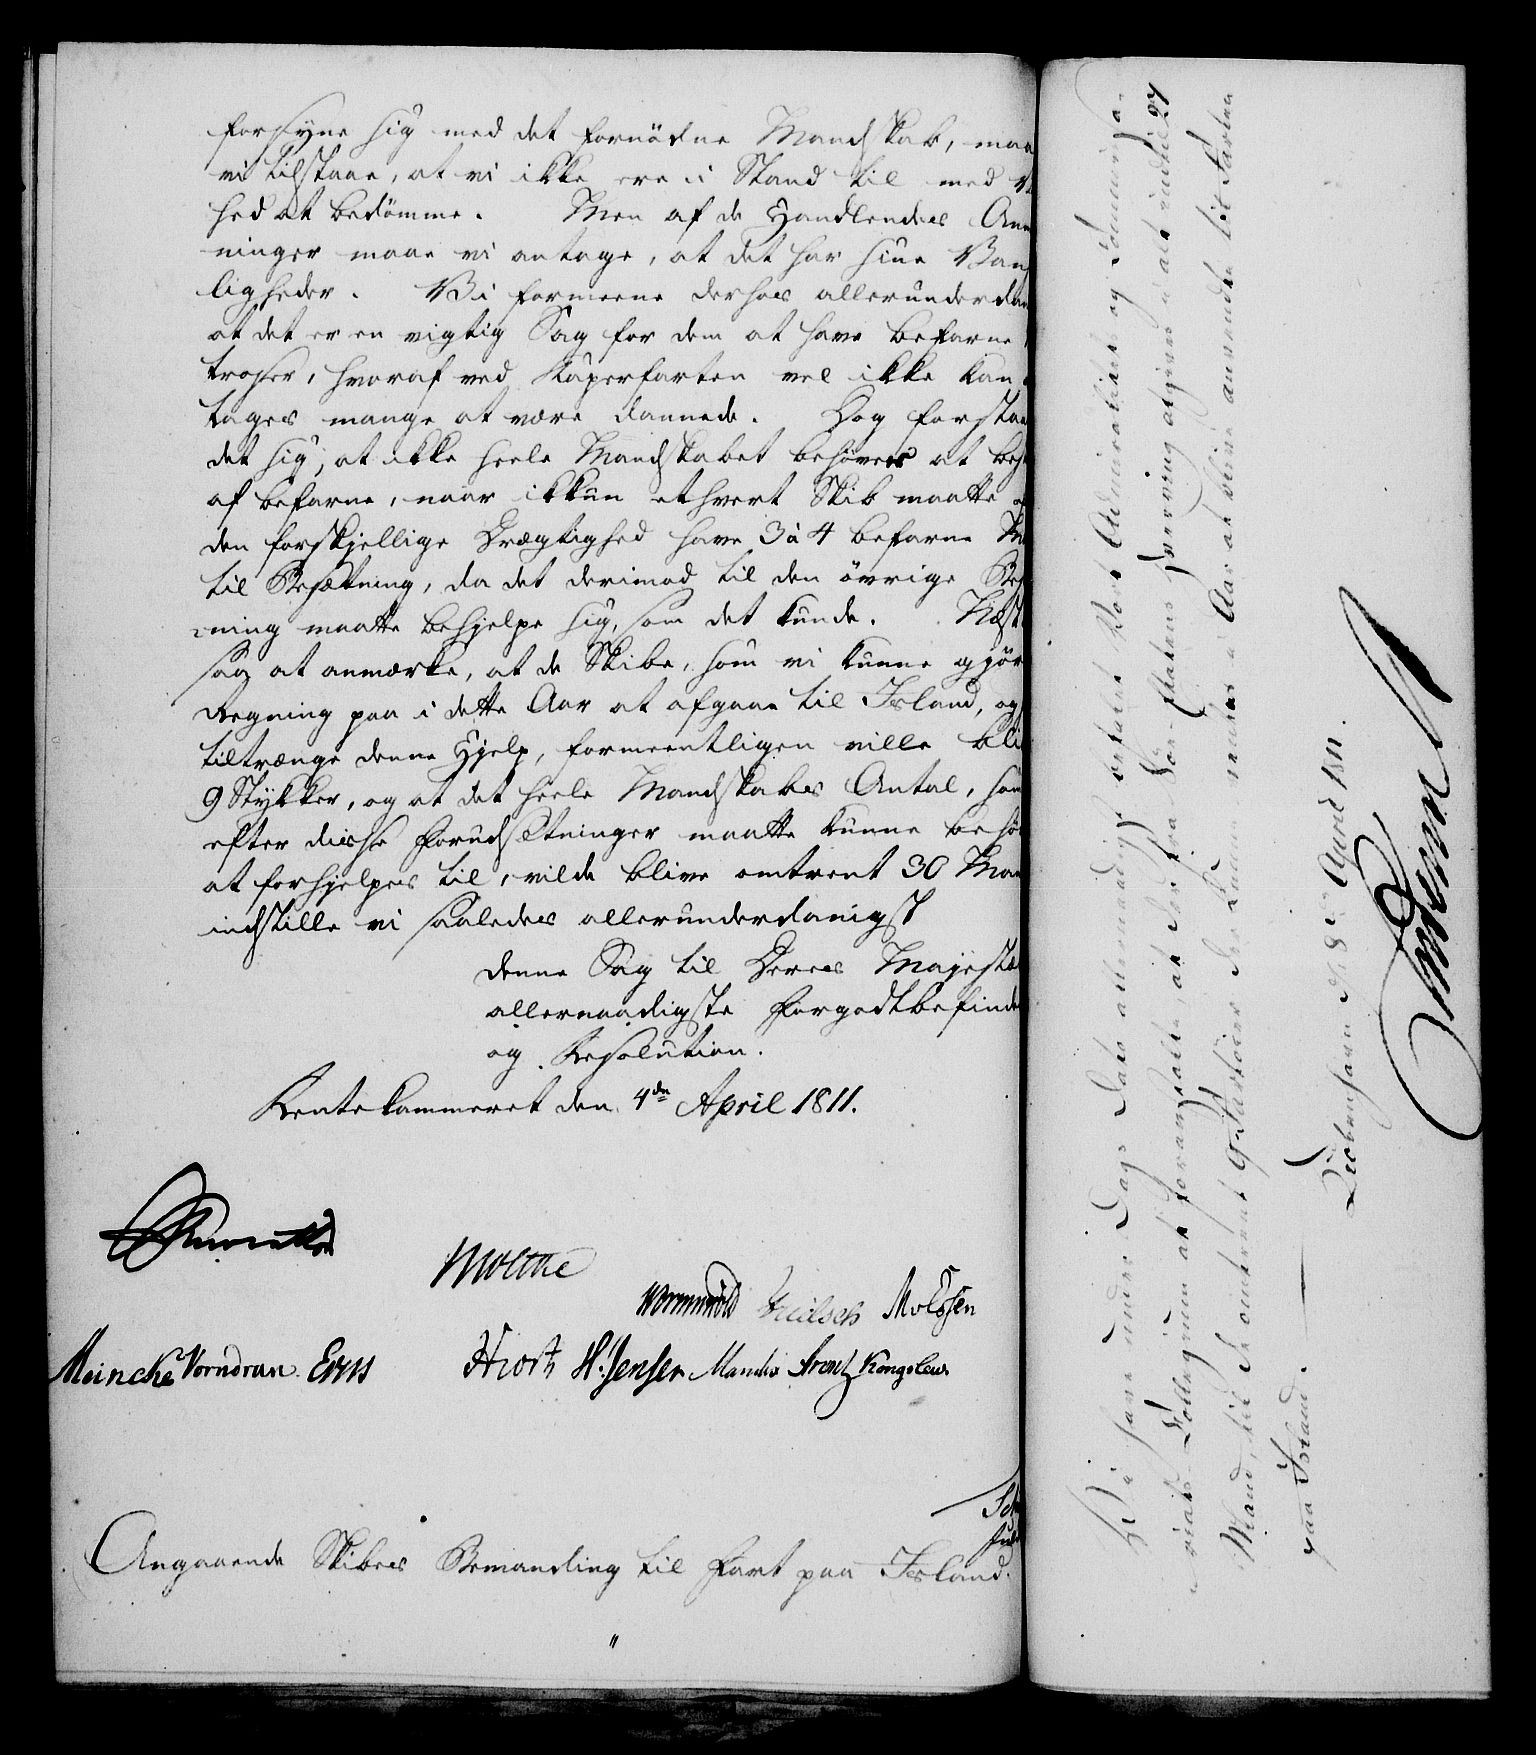 forsyne sig med det fornödne Mandskab, maa
vi tilstaae, at vi ikke ere i Stand til med
hed at bedömme. Men af de Handlendes An
ninger maae vi antage, at det har sine Van
ligheder. Vi formeene derhos allerunderdan
at det er en vigtig Sag for dem at have befarne
troser, hvoraf ved Kaperfarten vel ikke kan
tages mange at være dannede. Dog forstaa
det sig, at ikke heele Mandskabet behöves at bes
af befarne, naar ikkun ethvert Skib maatte
den forskjellige Drægtighed have 3 à 4 befarne
til Besætning, da det derimod til den övrige Bes
ning maatte behjelpe sig, som det kunde. Næst
saa at anmærke, at de Skibe, som vi kunne gjör
Regning paa i dette Aar at afgaae til Island, og
tiltrænge denne Hjelp, formeentligen ville bli
9 Stykker, og at det heele Mandskabs Antal, som
efter disse Forudsætninger maatte kunne behö
at forhjelpes til, vilde blive omtrent 30 Man
indstille vi saaledes allerunderdanigst
denne Sag til Deres Majestæ
allernaadigste Forgodtbefinde
og Resolution.
Rentekammeret den 4de April 1811.
Moltke
Wormskiold Molssen
Meincke Vorndran
Hiort H. Jensen Arentz Kongslew
Angaaende Skibes Bemanding til Fart paa Island.
Vi have under Dags Dato allernaadigst befalet Vort Admiralitets og Commissa-
riats-Collegium at foranstalte, at der fra Söe-Etatens Hverving afgives i alt indtil 27
Mand, til de omtrent 9 Fartöier der kunne ventes i Aar at blive anvendte til Farten
paa Island.
Kiöbenhavn d. 8 April 1811.